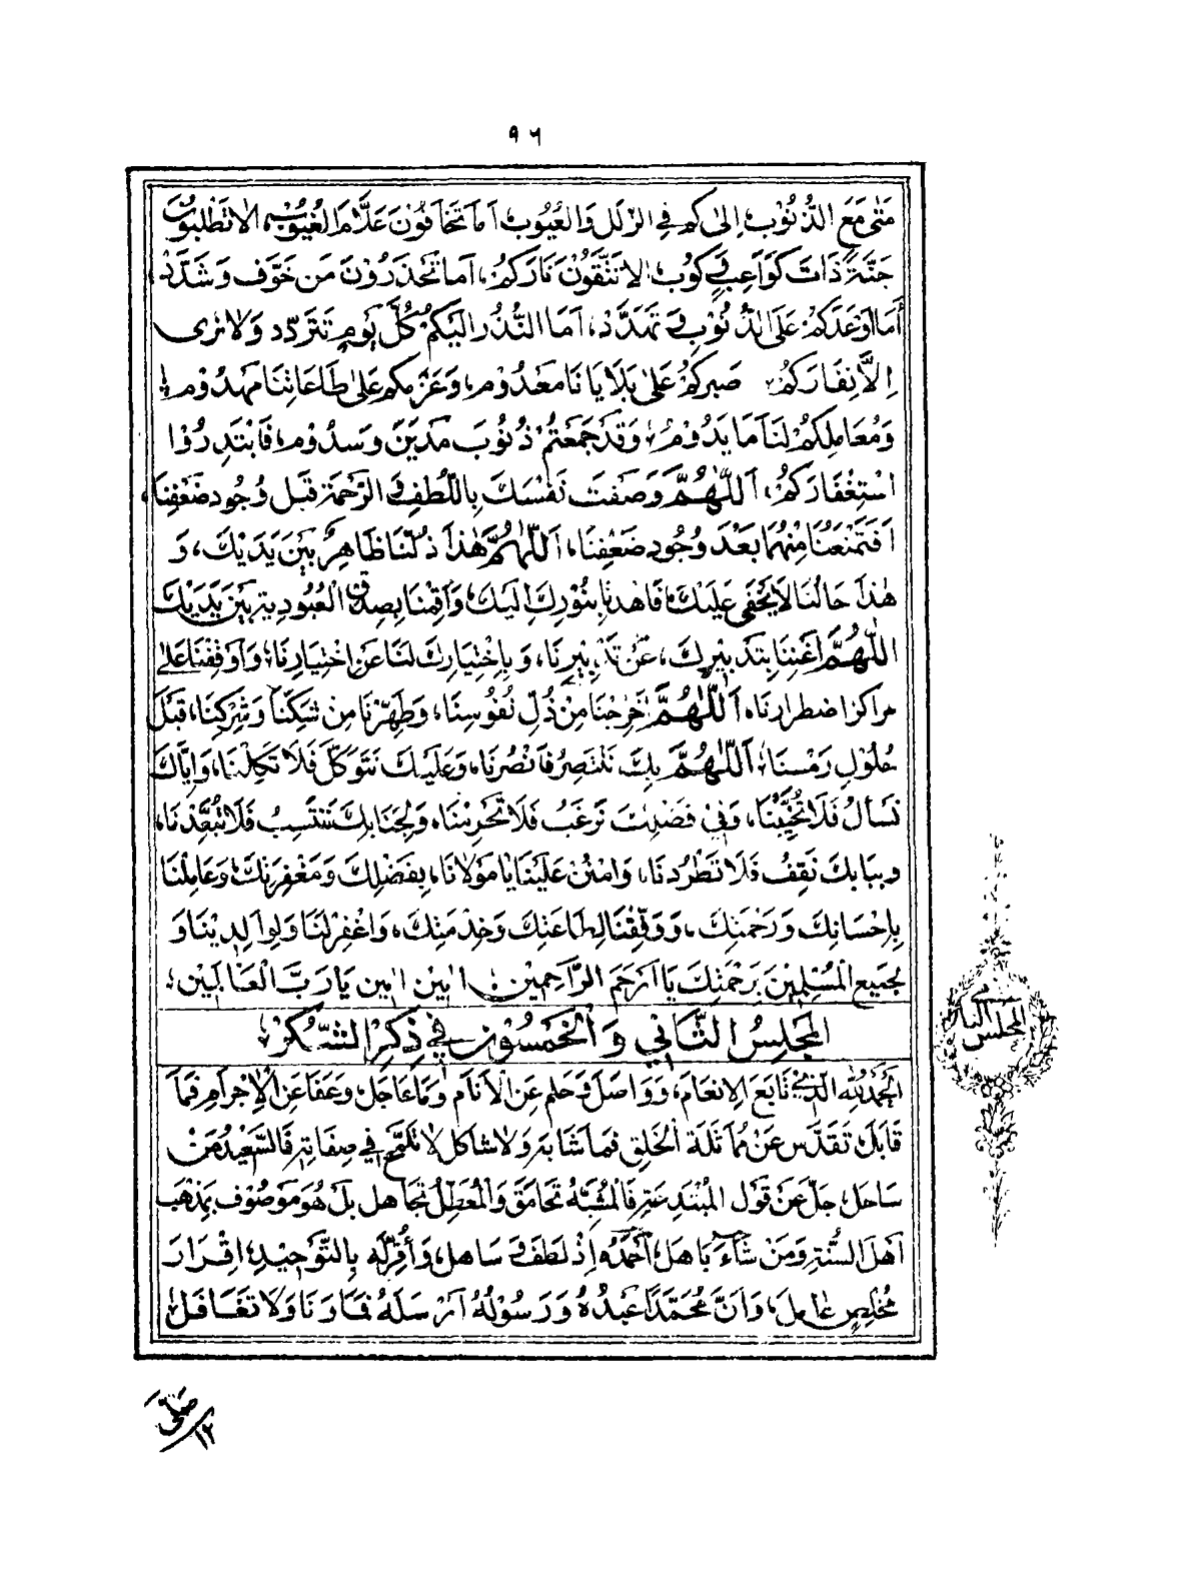 ٩٦
مَتٰى مَعَ الذُّنُوْبِ اِلٰى كم فِي الزلل وَالعُيُوْبِ اَمَا تَخَافُوْنَ عَلَّامَ الْغُيُوْبِ، الا تَطْلبُوْن
جَنَّةً ذَاتَ كَوَاعِبَ كُوب الا تَتَّقُوْنَ نَارَكمُ، اَمَا تَحْذَرُوْنَ مَن خَوَّف وَشَدَّدْ،
اَمَا اَوْعَدَكمُ عَلَى الذُّنُوْبِ تَهَدَّدْ، اَمَا النُّذُر اِلَيْكُمْ كُلَّ يَوْمٍ تَتَرَدّد وَلا نرى
اِلَّا نِفَارَكمُ، صَبركمُ عَلىٰ بَلَايَانَا مَعْدُوْم، وَعَزْمكم عَلىٰ طَاعَاتِنَا مَهدُوْم،
وَمُعَامَلتكمُ لَنَا مَا يَدُوْمُ، وَقَدْ جَمَعْتُمْ ذُنُوبَ مَدْيَنَ وَسدُوْم، فَابْتَدِرُوْا
اسْتِغْفَارَكمُ، اَللّٰهُمَّ وَصَفْتَ نَفْسَكَ بِاللُّطفِ فِي الرَّحْمَةِ قَبْل وُجُود ضَعْفِنَا،
اَفَتَمْنَعُنَا مِنْهُمَا بَعْدَ وُجُودِ ضَعْفِنَا، اَللّٰهُمَّ هٰذَا ذُلّنَا ظَاهِرٌ بَيْنَ يَدَيْكَ، وَ
هٰذَا حَالُنَا لَا يَخْفٰى عَلَيْكَ، فَاهْدِنَا بِنُوْرِكَ اِلَيْكَ، وَاَقِمْنَا بِصِدْقِ الْعُبُودِيةِ بَيْنَ يَدَيْكَ
اَللّٰهُمَّ اَغْنِنَا بِتَدْبِيْرِكَ، عَنْ تَدْبِيْرِنَا، وَبِاِخْتِيَارِكَ لَنَا عَنِ اخْتِيَارِنَا، وَاَوْقِفْنَا عَلىٰ
مراكز اضطرارنا، اَللّٰهُمَّ اَخْرِجْنَا مِنْ ذُلِّ نُفُوْسِنَا، وَطَهِّرْنَا مِنْ شَكِّنَا وَشِرْكِنَا، قَبْلَ
حُلُوْلِ رَمْسِنَا، اَللّٰهُمَّ بِكَ نَنْتَصِرُ فَانْصُرْنَا، وَعَلَيْكَ نَتَوَكَّلُ فَلَا تَكِلْنَا، وَاِيَّاكَ
نَسْأَلُ فَلَا تُخَيِّبْنَا، وَفِيْ فَضْلِكَ نَرْغَبُ فَلَا تَحْرِمْنَا، وَلِجَنَابِكَ نَنْتَسِبُ فَلَا تُبْعِدْنَا،
وببابكَ نَقِفُ فَلَا تَطْرُدنَا، وَامْنُنْ عَلَيْنَا يَا مَوْلَانَا، بِفَضْلِكَ وَمَغْفِرَتِكَ، وَعَامِلْنَا
بِاِحْسَانِكَ وَرَحْمَتِكَ، وَوَفِّقْنَا لِطَاعَتِكَ وَخِدْمَتِكَ، وَاغْفِرْ لَنَا وَلِوَالِدِيْنَا وَ
لِجَمِيْعِ الْمُسْلِمِيْنَ بِرَحْمَتِكَ يَا اَرْحَمَ الرَّاحِمِيْنَ، اٰمِيْن اٰمِين يَا رَبَّ الْعَالَمِيْنَ،
اَلْمَجْلِسُ الثَّانِي وَالْخَمْسُوْن فِي ذِكْرِ الشُّكْرْ،
اَلْحَمْدُ لِلّٰهِ الَّذِيْ تَابَعَ الاِنعَامَ، وَوَاصَلَ وَحَلُمَ عَنِ الْاَنَامِ وَمَا عَاجَلَ وَعَفَا عَنِ الْاِجْرَامِ فَمَا
قَابَلَ تَقَدَّسَ عَنْ مُمَاثَلَةِ الْخَلقِ فَمَا شَابَهَ وَلا شاكل لا تَلْمَحْ فِي صِفَاتِهٖ فَالسَّعِيْدُ مَنْ
سَاحل، جَلَّ عَنْ قَوْلِ الْمُبْتَدِعَةِ فَالْمُشَبِّهُ تَحَامَقَ وَالْمُعَطِّلُ تجَاهل بَلْ هُوَ مَوْصُوْف بِمَذْهَب
اَهْلِ السُّنَّةِ وَمَنْ شَاءَ بَاهَلَ، اَحْمَدُهٗ اِذْ لَطَفَ سَاهل، وَاُقِرُّ لَهٗ بِالتَّوْحِيْدِ، اِقْرَارَ
مُخْلِصٍ عَامِلٍ، وَاَنَّ مُحَمَّدًا عَبْدُهٗ وَرَسُوْلُهُ اَرْسَلَهُ فَمَا وَنَا وَلَا تَغَافَلَ،
المجلس الثاني
صَلّٰى
١٢